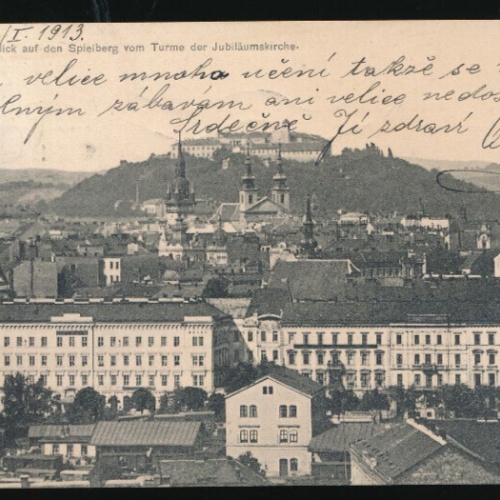 /I. 1913.
lick auf den Spielberg vom Turme der Jubiläumskirche.
velice mnoho učení takže se
lným zábavám ani velice nedos
Srdečně Ji zdraví